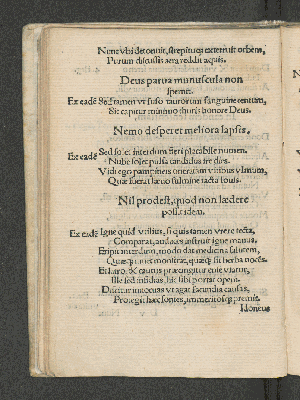 Nunc vbi detonuit, strepituq; exterruit orbem,
Purum discussis aera reddit aquis.
Deus parua munuscula non
spernit.
Ex eadē Sed tamen vt fuso taurorum sanguine centum,
Sic capitur minimo thuris honore Deus.
Nemo desperet meliora lapsis.
Ex eadē Sed solet interdum fieri placabile numen.
Nube solet pulsa candidus ire dies.
Vidi ego pampineis oneratam vitibus vlmum,
Quæ fuerat sæuo fulmine tacta Iouis.
Nil prodest, quod non lædere
possit idem.
Ex eadē Igne quid vtilius, si quis tamen vrere tecta,
Comparat, audaces instruit igne manus.
Eripit interdum, modo dat medicina salutem,
Quæq; iuuet monstrat, quæq; sit herba nocēs.
Et latro, & cautus præcingitur ense viator,
Ille sed insidias, hic sibi portat opem.
Discitur innocuas vt agat facundia causas,
Protegit hæc sontes, immeritosq; premit.
Idoneus